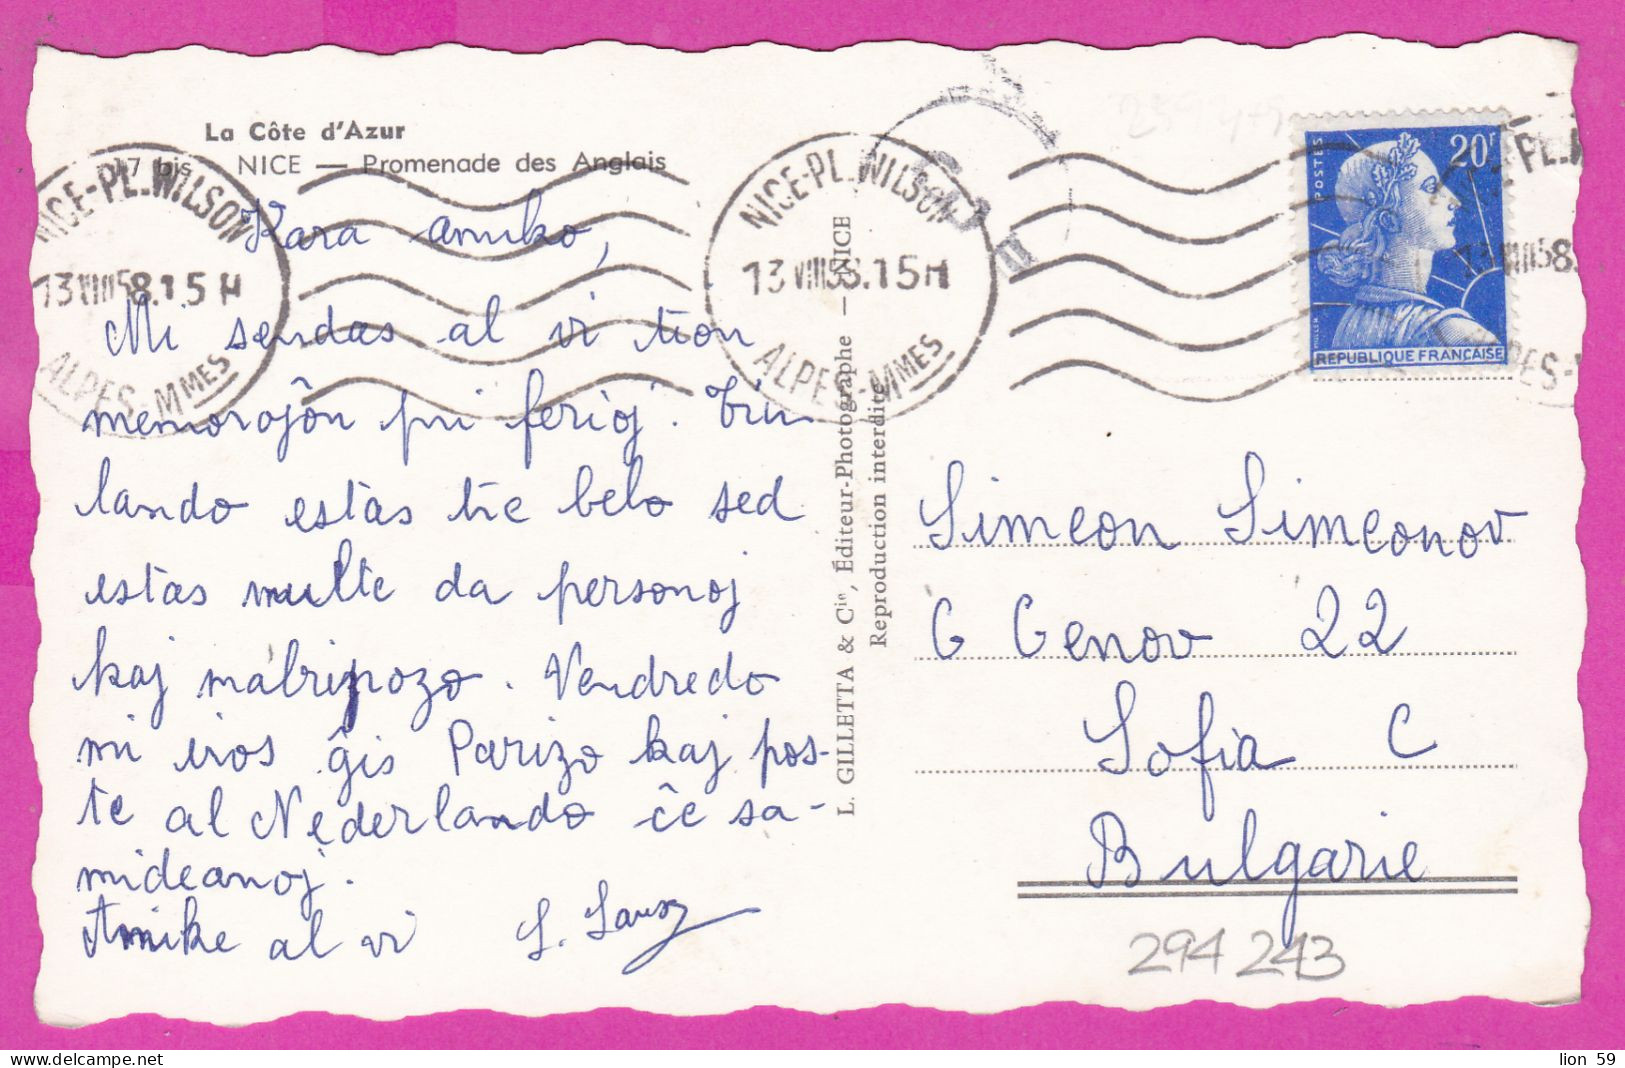 La Côte d'Azur
17 bis NICE — Promenade des Anglais
NICE-PL. WILSON
13 VIII 58.15H
ALPES-MMES
NICE-PL. WILSON
13 VIII 58.15H
ALPES-MMES
POSTES
20F
MULLER
REPUBLIQUE FRANÇAISE
Kara amiko,
Mi sendas al vi tion
memoraĵon pri ferioj.
lando estas tre belo sed
estas multe da personoj
kaj malripozo. Vendredo
mi iros ĝis Parizo kaj pos-
te al Nederlando ĉe sa-
mideanoj.
Amike al vi
L. GILLETTA & Cie, Éditeur-Photographe — NICE
Reproduction interdite
Simeon Simeonov
G Genov 22
Sofia C
Bulgarie
294243
lion 59